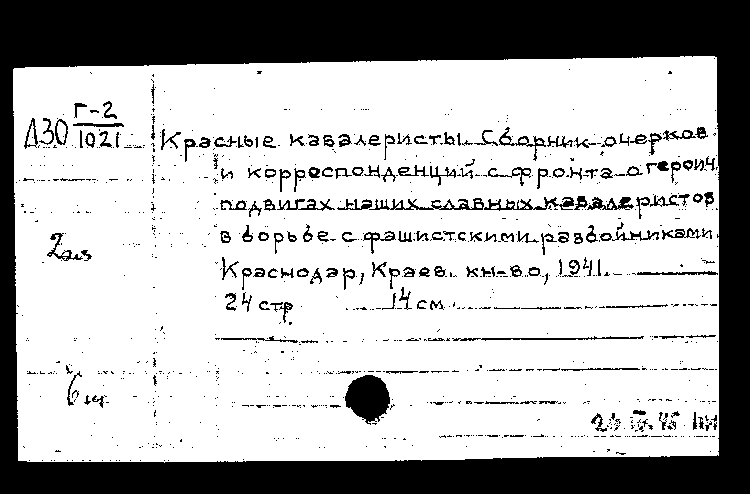 Д30 Г-2
1021
Красные кавалеристы. Сборник очерков
и корреспонденций с фронта о героич.
подвигах наших славных кавалеристов
в борьбе с фашистскими разбойниками.
Краснодар, Краев. кн-во, 1941.
24 стр. 14 см.
2 экз
6 ш.
26.IV.45